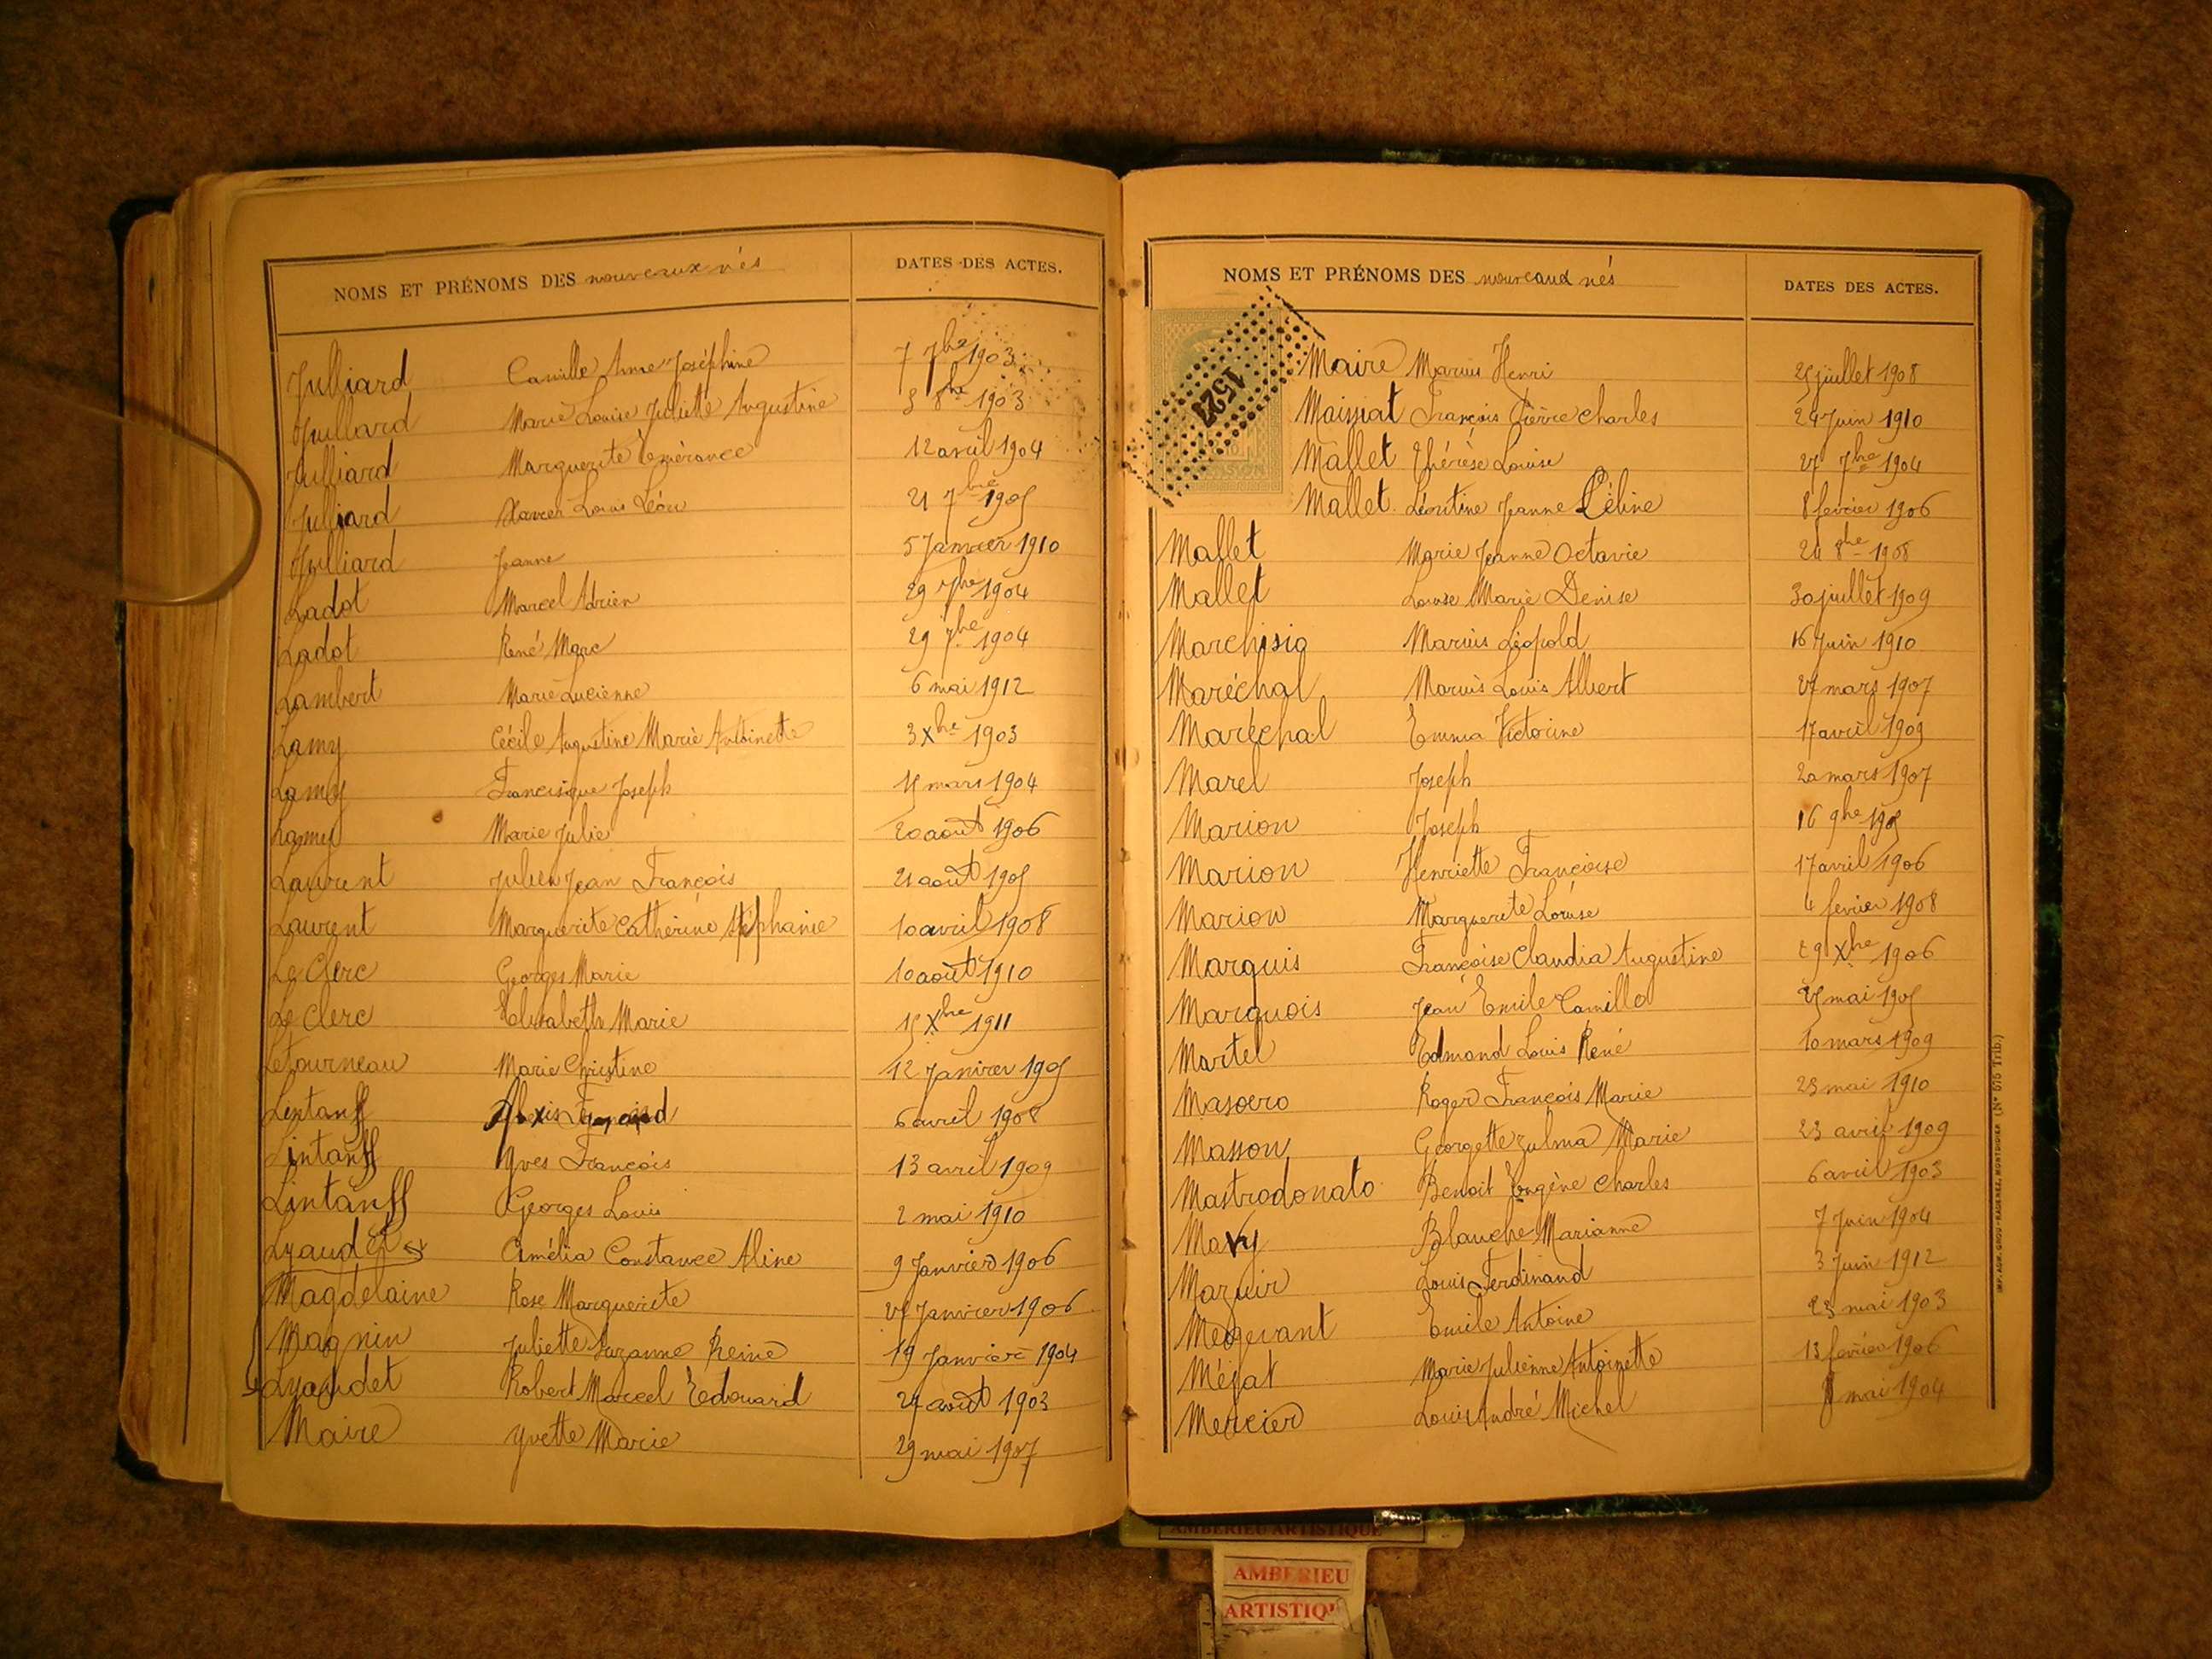 NOMS ET PRÉNOMS DES nouveaux nés DATES DES ACTES.
Julliard Camille Anne Joséphine 7 7bre 1903
Jullard Marie Louise Juliette Augustine 3 8bre 1903
Julliard Marguerite Espérance 12 avril 1904
Julliard Xavier Louis Léon 21 7bre 1905
Julliard Jeanne 5 Janvier 1910
Ladot Marcel Adrien 29 7bre 1904
Ladot René Marc 29 7bre 1904
Lambert Marie Lucienne 6 mai 1912
Lamy Cécile Augustine Marie Antoinette 3 Xbre 1903
Lamy Francisque Joseph 15 mars 1904
Lamy Marie Julie 20 août 1906
Laurent Julien Jean François 21 août 1905
Laurent Marguerite Catherine Stéphanie 10 avril 1908
Le Clerc Georges Marie 10 août 1910
Le Clerc Elisabeth Marie 15 Xbre 1911
Letourneau Marie Christine 12 Janvier 1905
Lintanff Alexis 6 avril 1908
Lintanff Yves François 13 avril 1909
Lintanff Georges Louis 2 mai 1910
Lyaudet Amélia Constance Aline 9 Janvier 1906
Magdelaine Rose Marguerite Janvier 1906
Magnin Juliette Suzanne Reine 19 Janvier 1904
Lyaudet Robert Marcel Edouard 27 août 1903
Maire Yvette Marie 29 mai 1907
NOMS ET PRÉNOMS DES nouveaux nés DATES DES ACTES.
1527
Maire Marius Henri 25 juillet 1908
Maissiat François Pierre Charles 24 Juin 1910
Mallet Thérèse Louise 27 7bre 1904
Mallet Léontine Jeanne Céline 8 fevrier 1906
Mallet Marie Jeanne Octavie 24 8bre 1908
Mallet Louise Marie Denise 30 juillet 1909
Marchisio Marius Léopold 16 Juin 1910
Maréchal Marius Louis Albert 27 mars 1907
Maréchal Emma Victorine 17 avril 1909
Marel Joseph 20 mars 1907
Marion Joseph 16 9bre 1905
Marion Henriette Françoise 17 avril 1906
Marion Marguerite Louise 4 fevrier 1908
Marquis Françoise Claudia Augustine 29 Xbre 1906
Marquois Jean Emile Camille 25 mai 1905
Martel Edmond Louis René 10 mars 1909
Masoero Roger François Marie 23 mai 1910
Masson Georgette Zulma Marie 23 avril 1909
Mastrodonato Benoit Eugène Charles 6 avril 1903
Mavy Blanche Marianne 7 Juin 1904
Mazuir Louis Ferdinand 3 Juin 1912
Megevant Emile Antoine 23 mai 1903
Méjat Marie Julienne Antoinette 13 fevrier 1906
Mercier Louis André Michel 8 mai 1904
IMP. ADM. GROU-RADENEZ, MONTDIDIER (N° 515 Trib.)
AMBERIEU ARTISTIQUE
AMBERIEU
ARTISTIQU